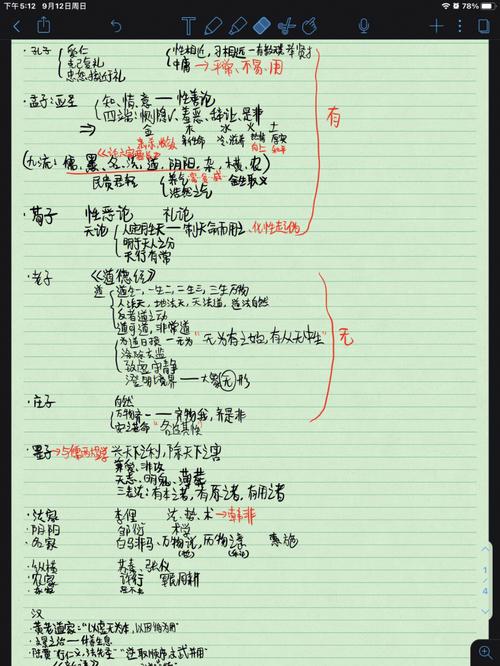 下午5:12 9月12日周日
78%
·孔子
克己复礼
性相近,习相远
中庸→平常、不易、用
·孟子:亚圣
知、情、意——性善论
四端:恻隐、羞恶、辞让、是非
⇒ 金 木 水 火 土
(九流:儒、墨、名、法、道、阴阳、杂、横、农)
民贵君轻
养气
浩然之气
舍生取义
有
·荀子 性恶论 礼论
天论
人定胜天——制天命而用之、化性起伪
明于天人之分
天行有常
·老子 《道德经》
道
道生一,一生二,二生三,三生万物
人法天,地法天,天法道,道法自然
反者道之动
道可道,非常道
为道日损——无为“无为有之始,有从无中生”
涤除玄鉴
致虚守静
澄明境界——大象无形
无
·庄子 自然
万物齐一——齐物我,齐是非
·墨子 兴天下之利,除天下之害
兼爱、非攻
天志、明鬼、薄葬
三表法:有本之者,有原之者,有用之者
·法家 李悝 法、势、术→韩非
·阴阳 邹衍 术学
·名家 白马非马、万物说,历物之意 惠施
·纵横 苏秦、张仪
·农家 许行 君民同耕
·杂家 吕不韦
汉
·黄老道家:“以虚无为本,以因循为用”
1/4